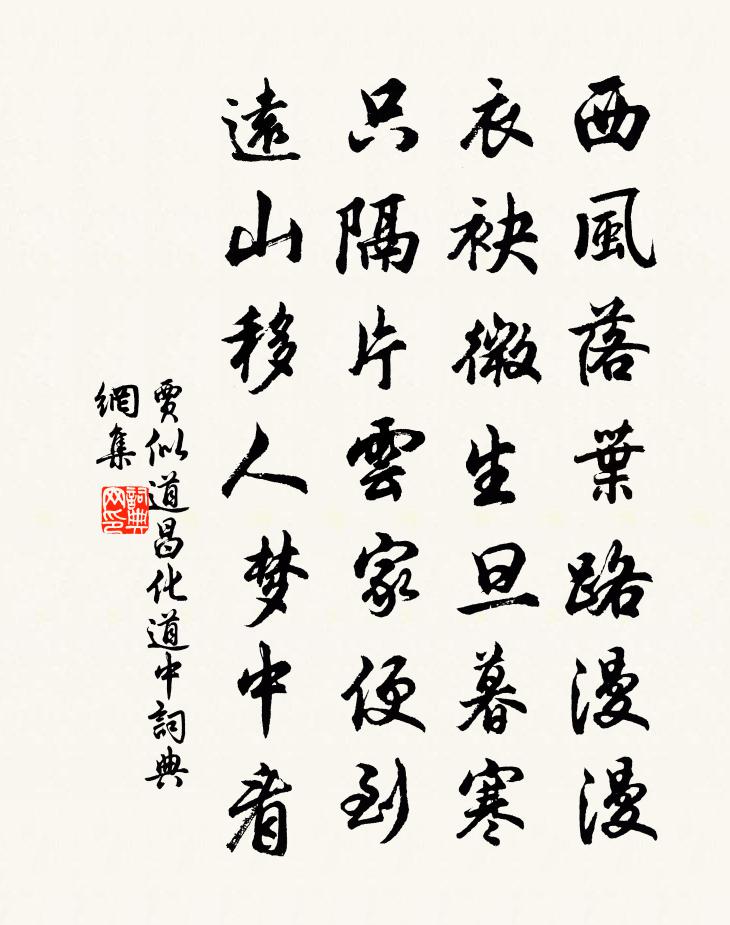 西風落葉路漫漫
衣袂微生旦暮寒
只隔片雲家便到
遠山移人梦中看
賈似道昌化道中詞典
網集
詞典网印